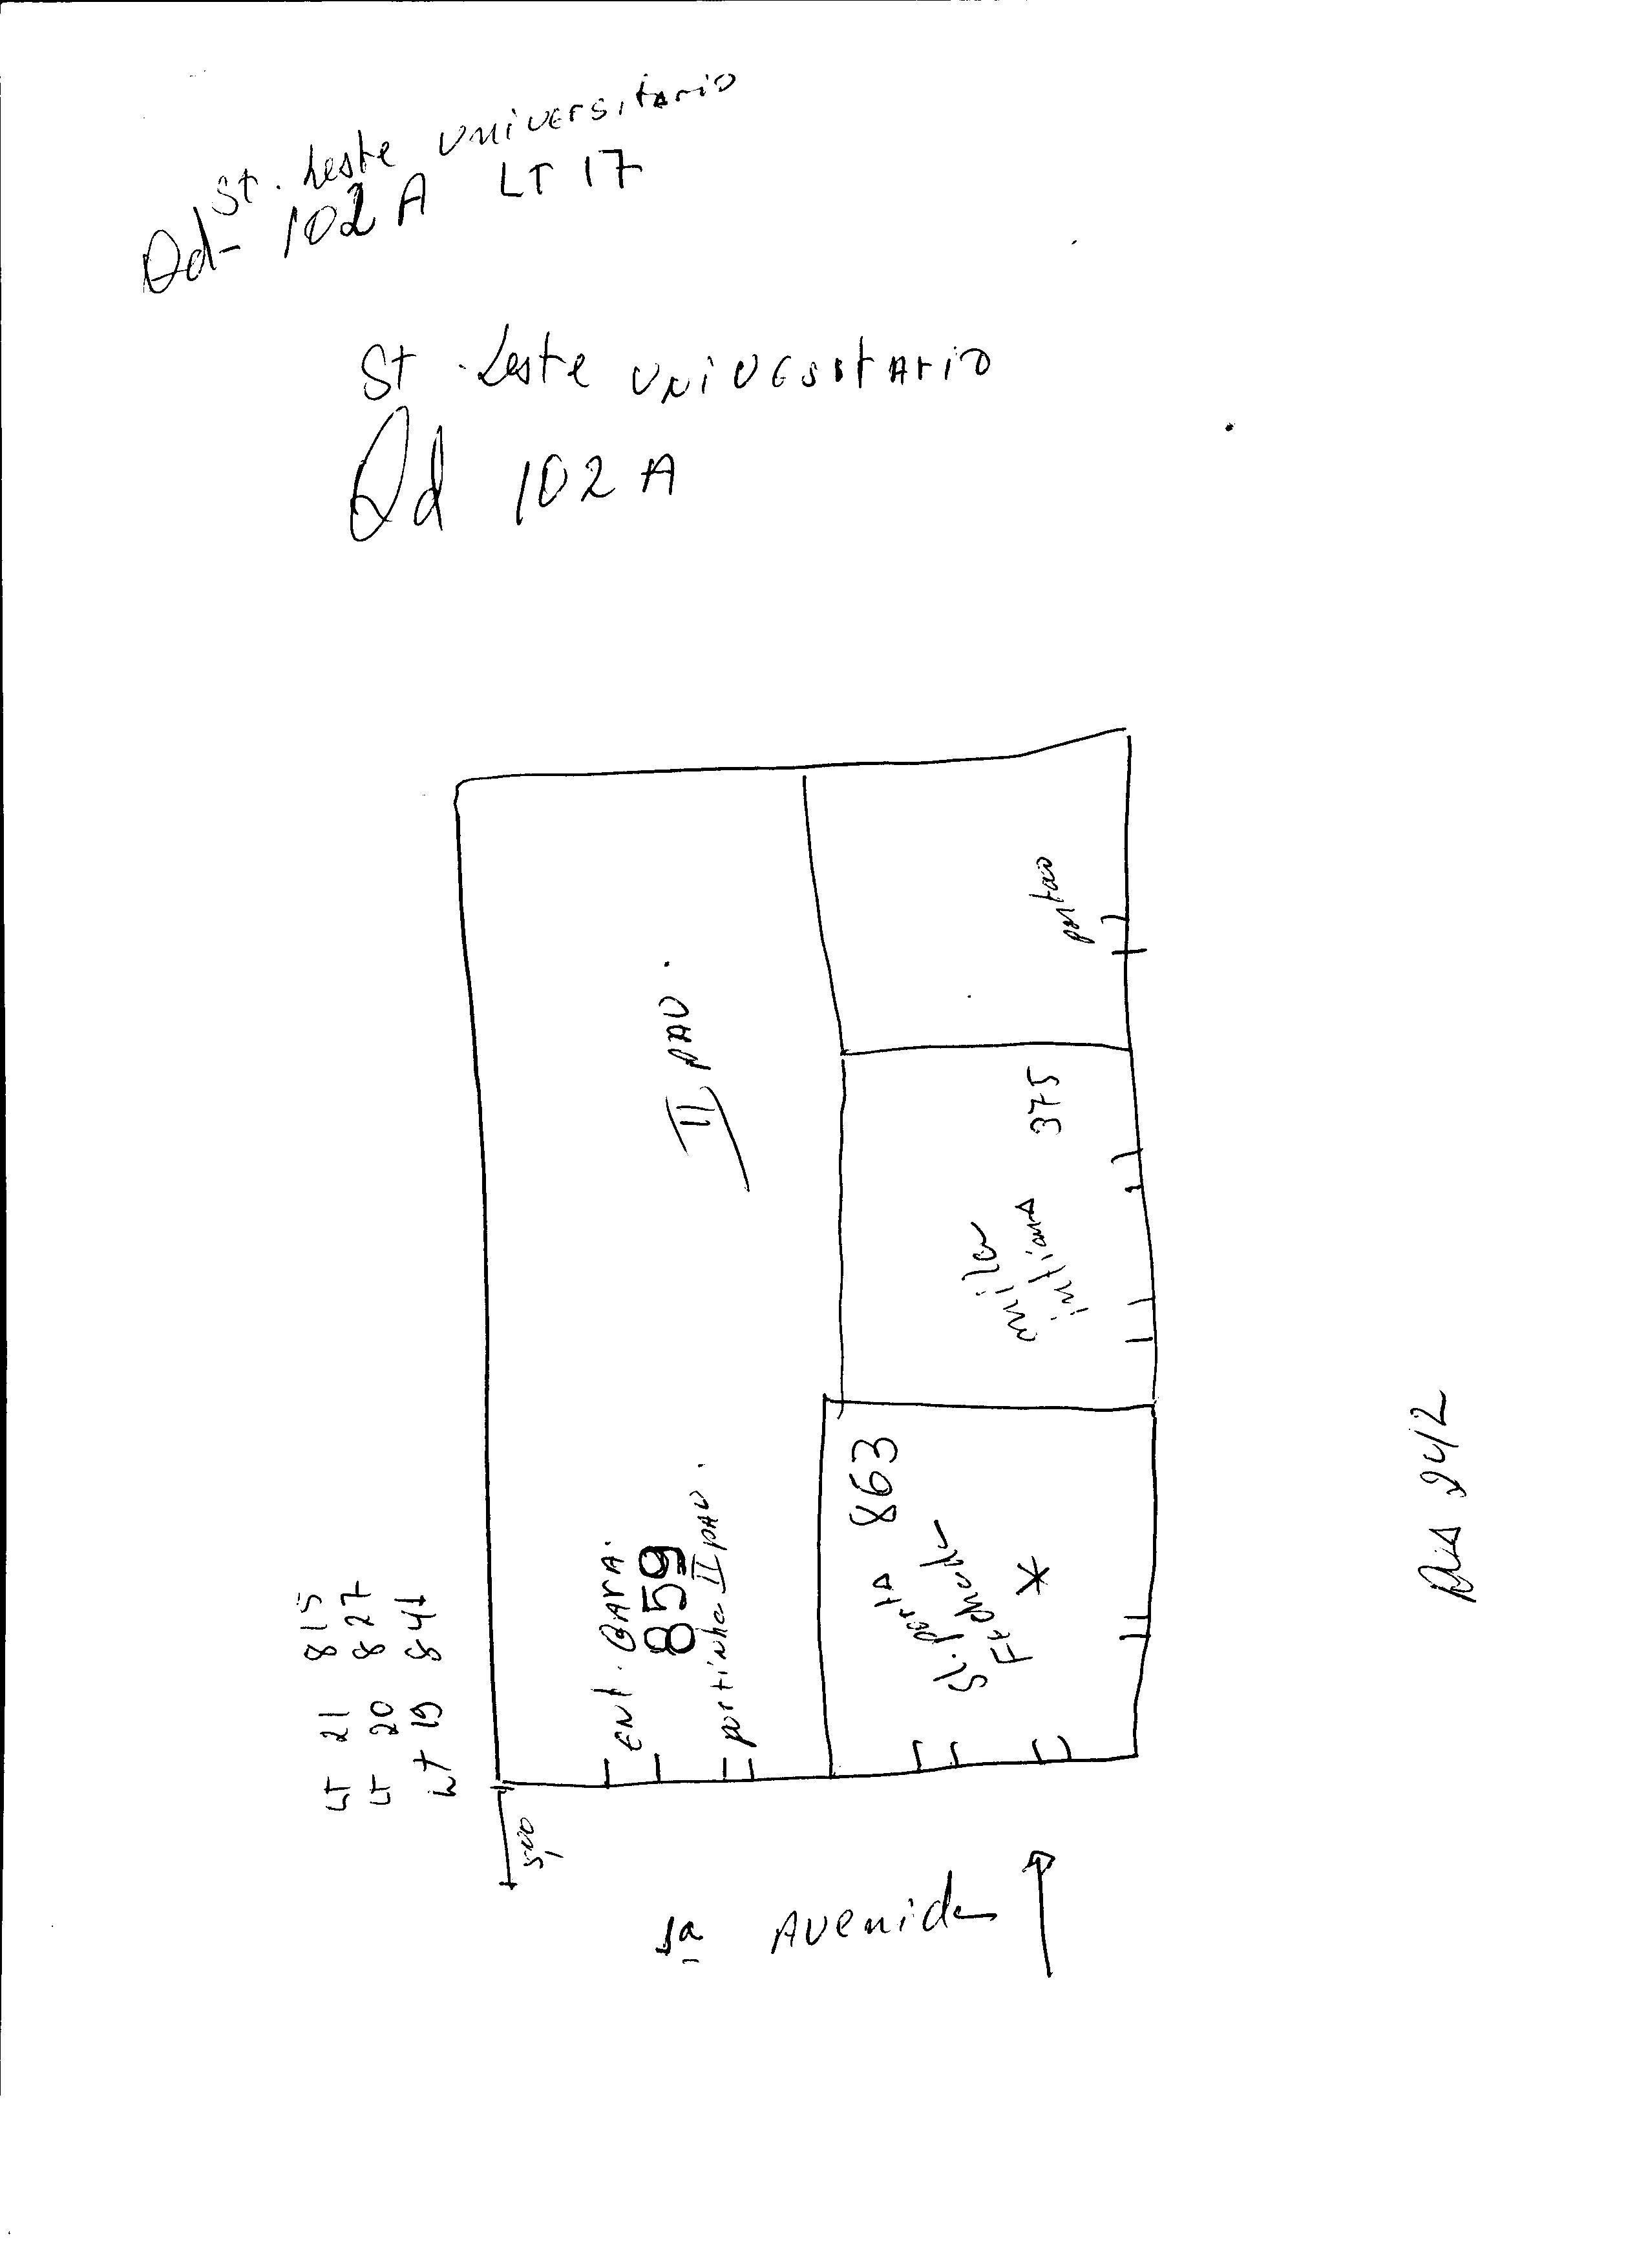 St. Leste Universitario
Qd- 102 A LT 17
St. Leste UNiVESitARio
Qd 102 A
LT 21 815
LT 20 827
LT 19 841
II PAV.
ENt. GARA.
859
portinha II PAV.
863
Sl. porta
Fechada
*
375
portao
5,00
1ª Avenida
Rua 242